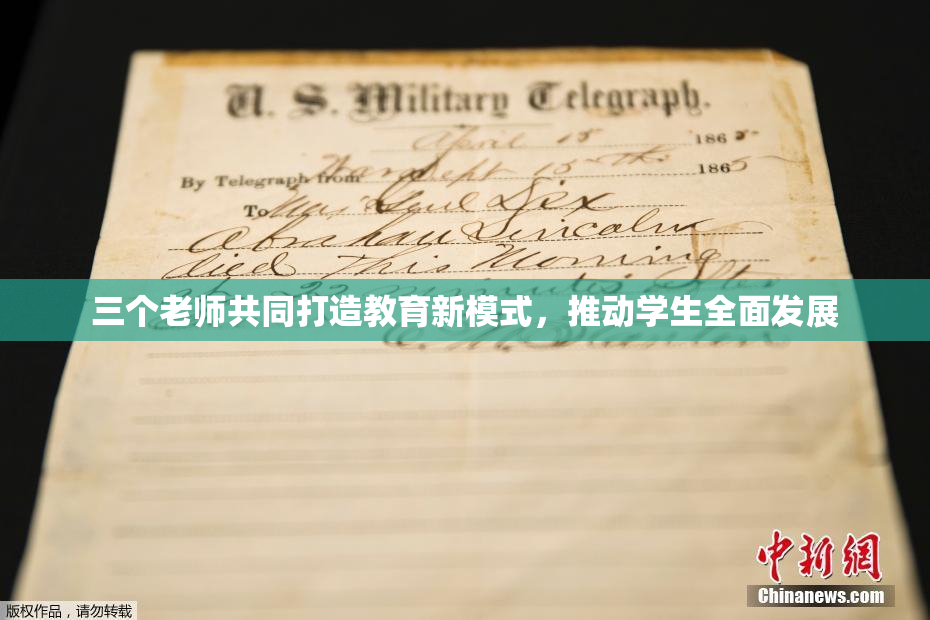 U. S. Military Telegraph.
April 15 1865
By Telegraph from War Dept 15th 1865
To Maj Genl Dix
Abraham Lincoln
died This Morning
at 22 minutes after
三个老师共同打造教育新模式，推动学生全面发展
中新网
Chinanews.com
版权作品，请勿转载